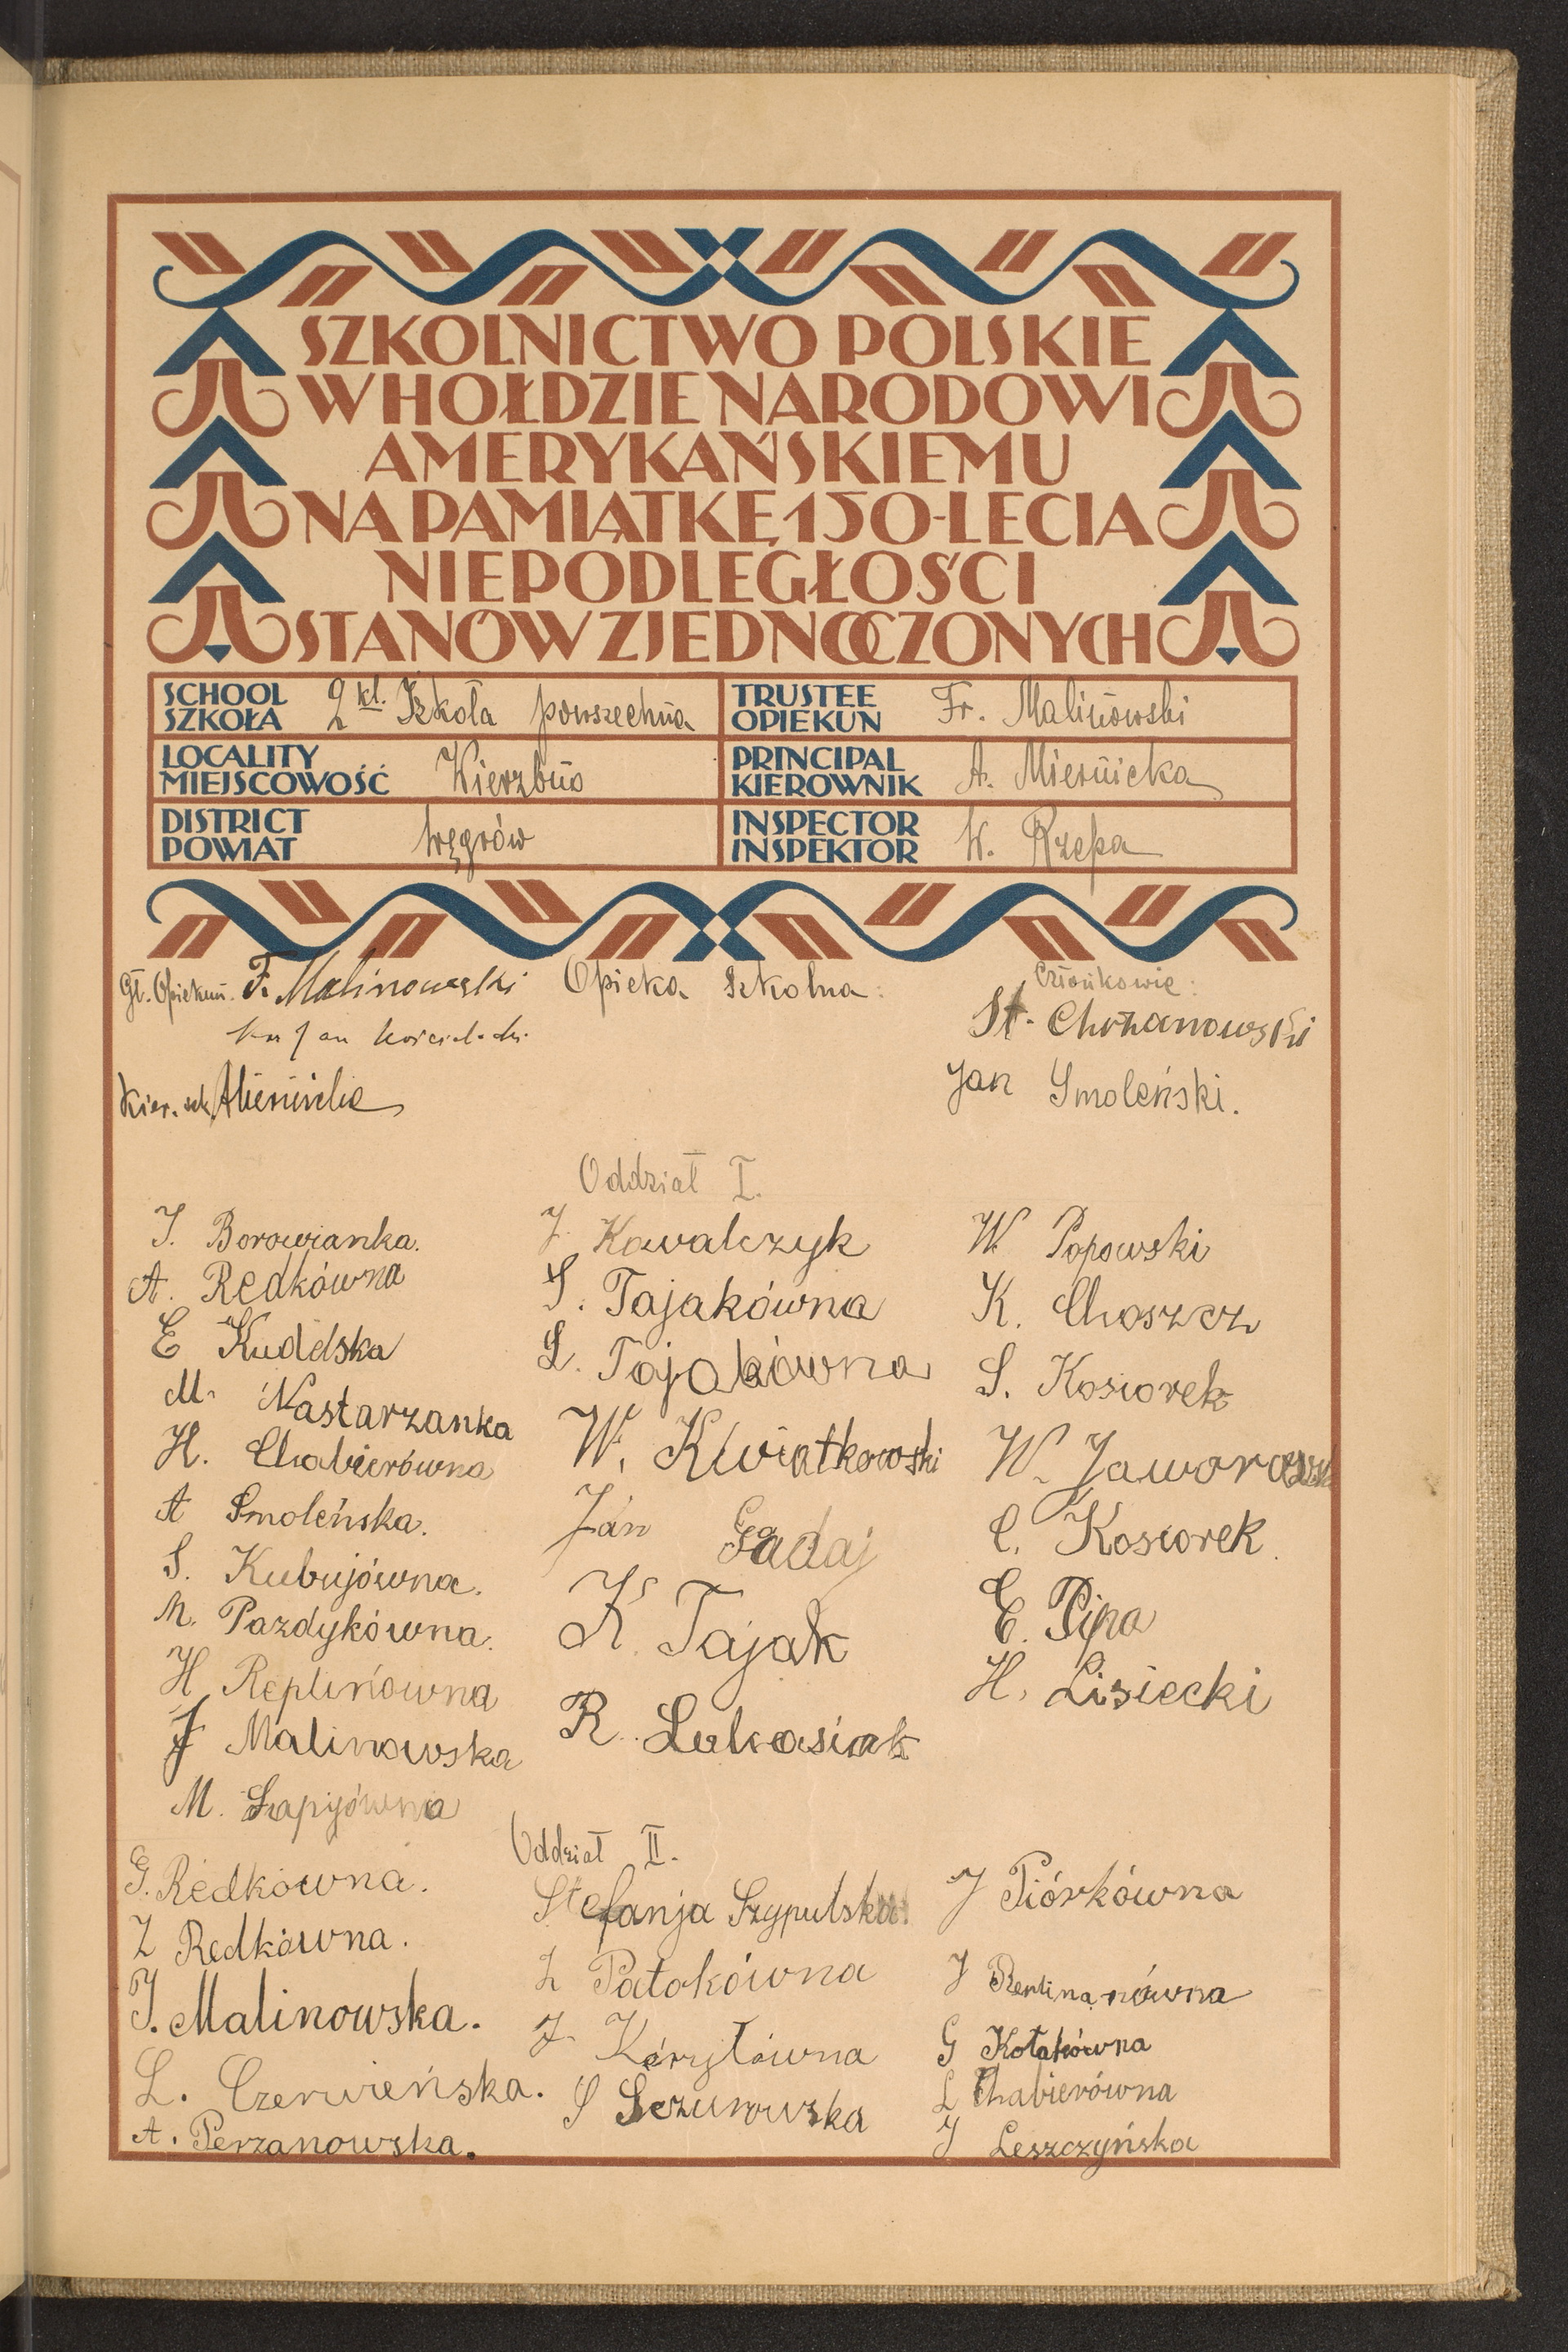 SZKOLNICTWO POLSKIE
W HOŁDZIE NARODOWI
AMERYKAŃSKIEMU
NA PAMIĄTKĘ 150-LECIA
NIEPODLEGŁOŚCI
STANÓW ZJEDNOCZONYCH
SCHOOL
SZKOŁA 2 kl. Szkoła powszechna
TRUSTEE
OPIEKUN Fr. Malinowski
LOCALITY
MIEJSCOWOŚĆ Wierzbno
PRINCIPAL
KIEROWNIK A. Miernicka
DISTRICT
POWIAT Węgrów
INSPECTOR
INSPEKTOR W. Rzepa
Gł. Opiekun. F. Malinowski Opieka Szkolna: Członkowie:
St. Chrzanowski
Kier. szk. AMiernicka
Jan Smoleński.
Oddział I.
J. Borowianka.
A. Redkówna
E Kudelska
M. Nastarzanka
H. Chabierówna
A Smoleńska.
S. Kubujówna.
M. Pazdykówna.
H Replinówna
J Malinowska
M. Łapijówna
J. Kowalczyk
S. Tajakówna
L. Tajakówna
W. Kwiatkowski
Jan Gadaj
K. Tajak
R. Łukasiak
W. Popowski
K. Choszcz
S. Kosiorek
W. Jaworowski
C. Kosiorek.
E. Pipa
H. Lisiecki
Oddział II.
G. Redkówna.
Z Redkówna.
J. Malinowska.
L. Czerwieńska.
A. Perzanowska.
Stefanja Szypulska
Z Patokówna
J Kóryłówna
S Sczurowska
J Piórkówna
J
G Kołakówna
L Chabierówna
J Leszczyńska